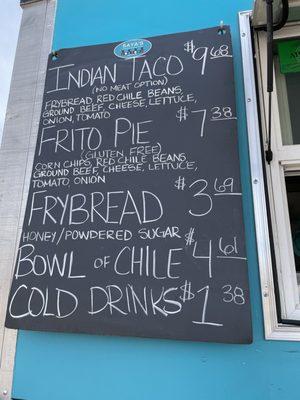 SAYA'S
INDIAN TACO $9.68
(NO MEAT OPTION)
FRYBREAD, RED CHILE BEANS,
GROUND BEEF, CHEESE, LETTUCE,
ONION, TOMATO
FRITO PIE $7.38
(GLUTEN FREE)
CORN CHIPS, RED CHILE BEANS,
GROUND BEEF, CHEESE, LETTUCE,
TOMATO, ONION
FRYBREAD $3.69
HONEY/POWDERED SUGAR
BOWL OF CHILE $4.61
COLD DRINKS $1.38